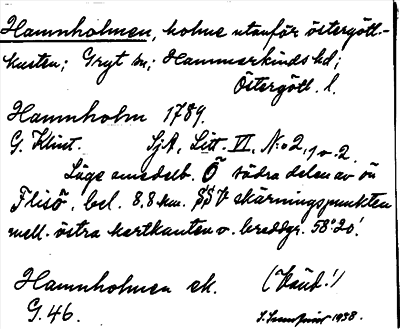 Hamnholmen, holme utanför östergötl.-
kusten; Gryt sn; Hammarkinds hd;
Östergötl. l.
Hamnholm 1789.
G. Klint. SjA, Litt VI, No 2, 1 o. 2.
Läge omedelb. Ö södra delen av ön
Flisö, bel. 8.8 km. SSV skärningspunkten
mell. östra kartkanten o. breddgr. 58°20'.
Hamnholmen ek. (Känd!)
G. 46. 1938.